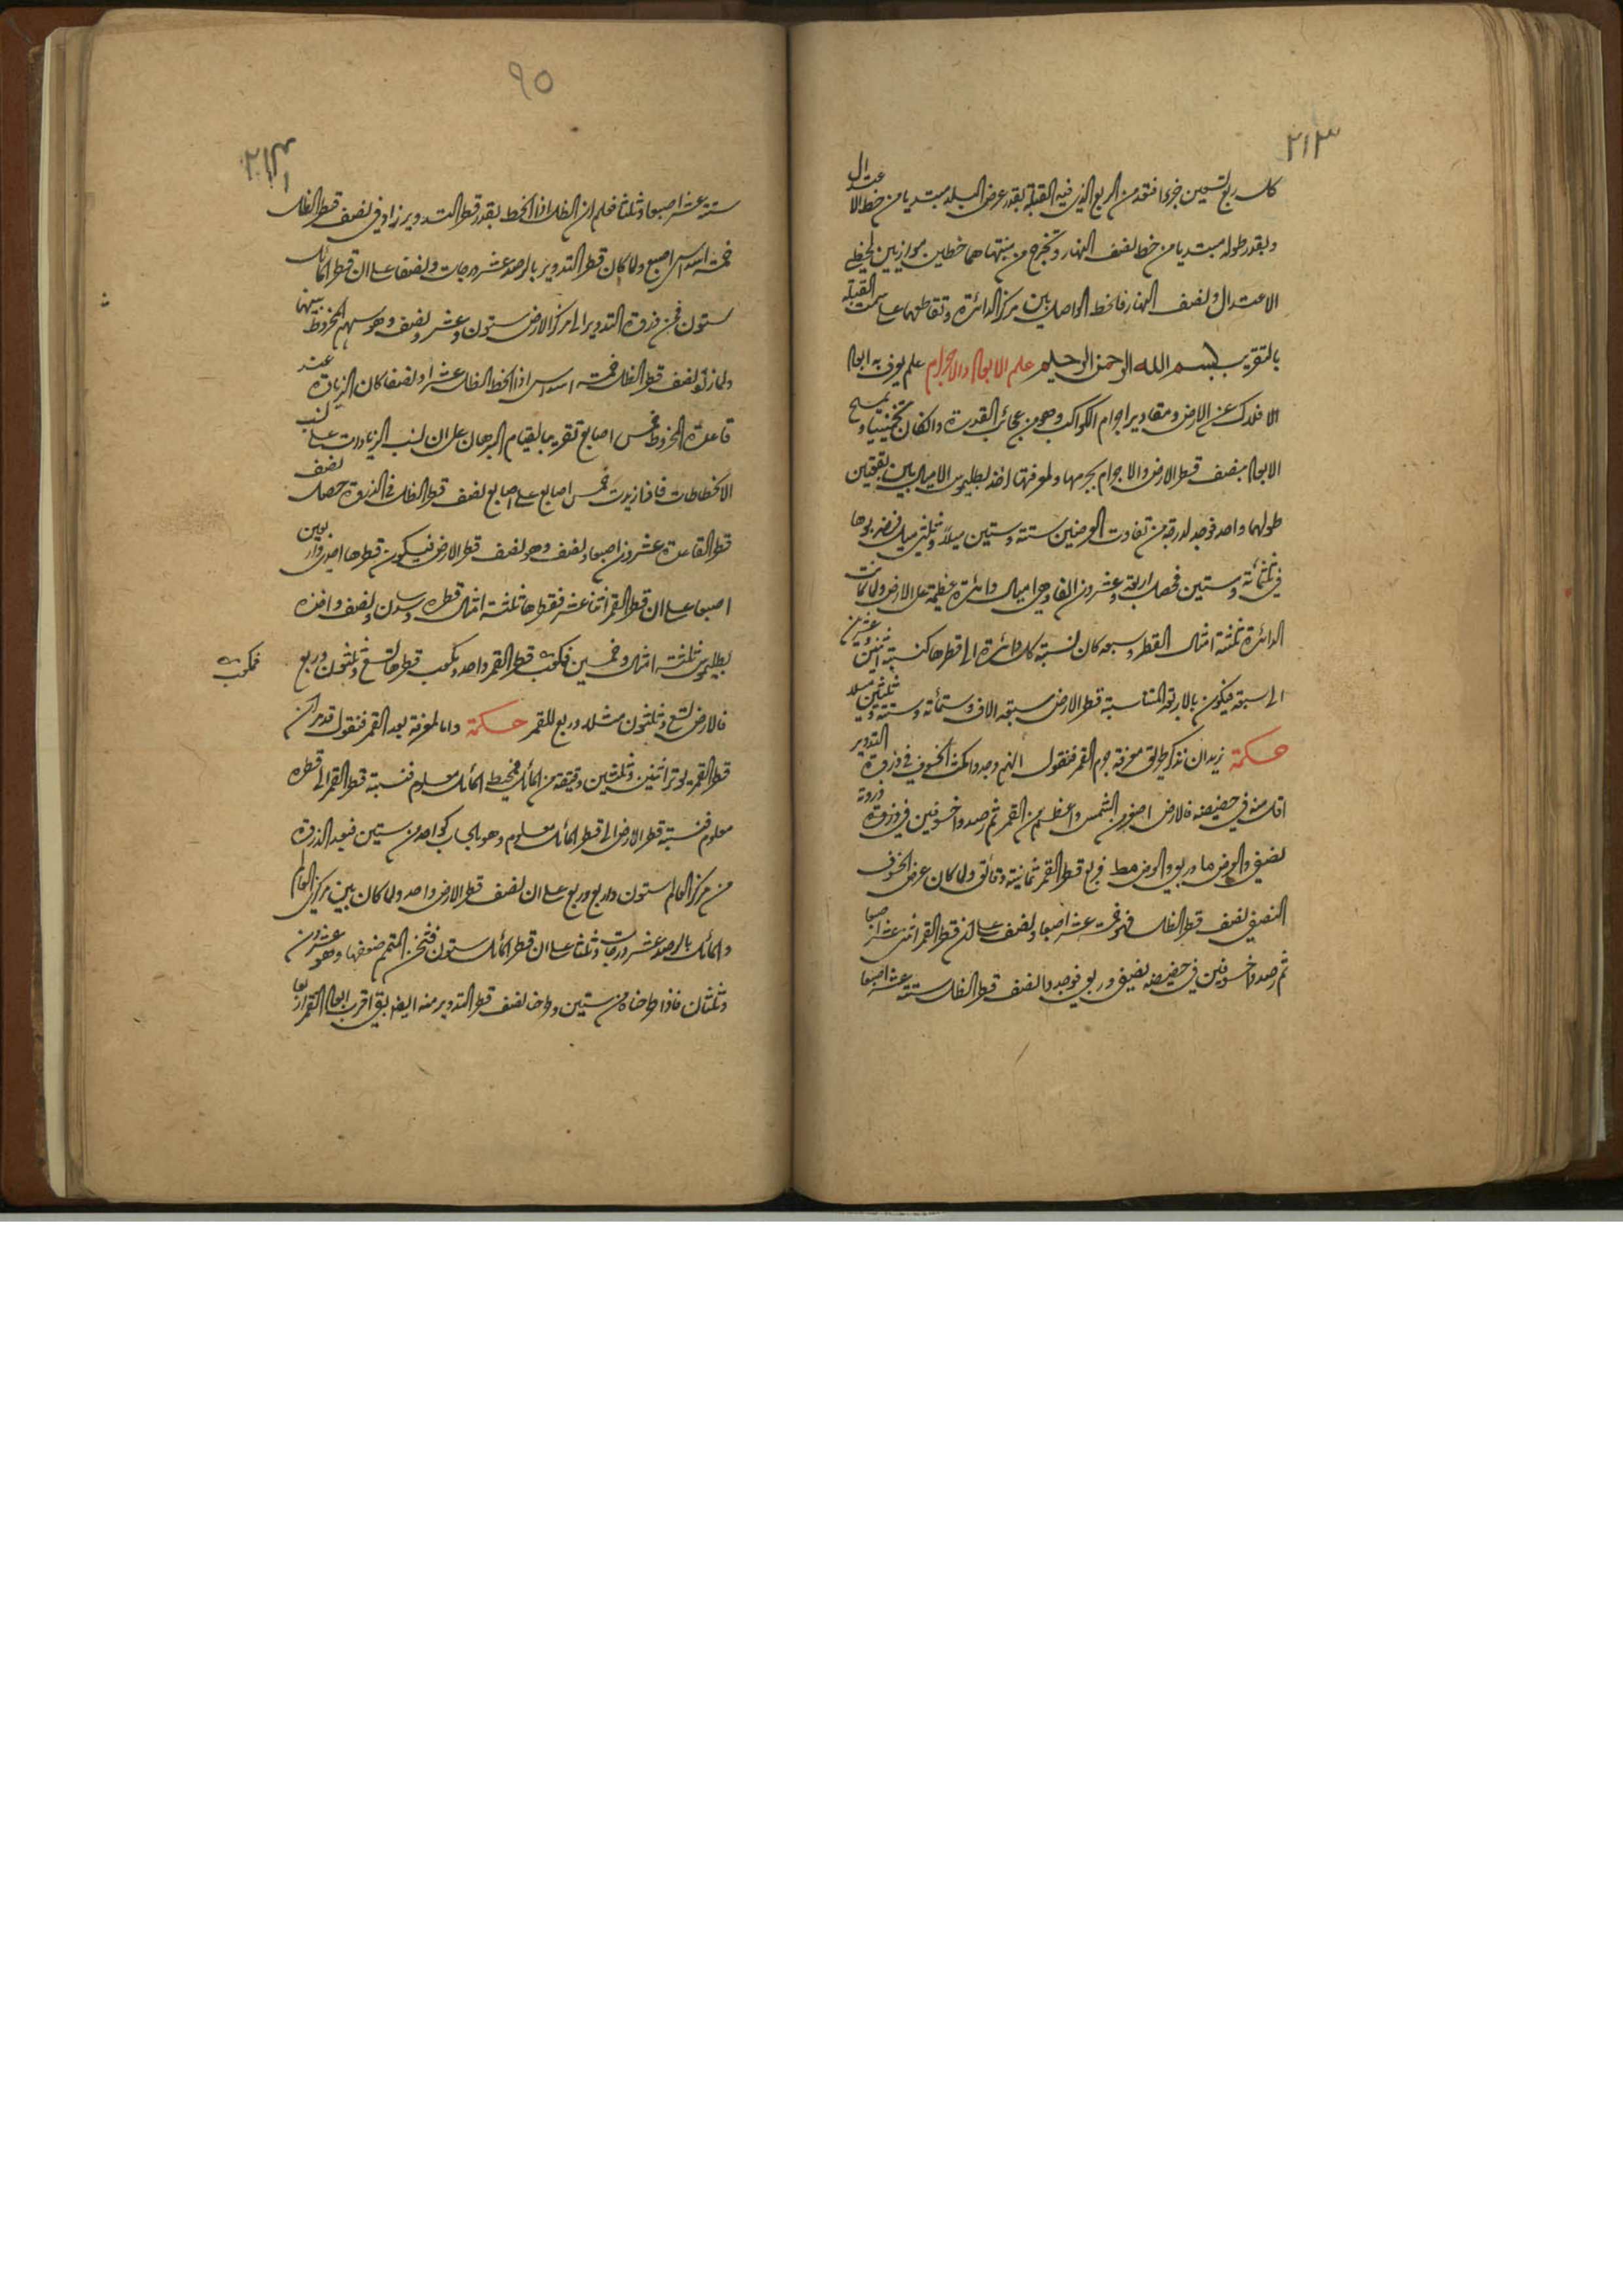 ٢١٣
كل ربع تسعين جزءا فتعد من الربع الذي فيه القبلة بقدر عرض البلد مبتديا من خط الاعتدال
وبقدر طوله مبتديا من خط نصف النهار وتخرج من منتهاهما خطين موازيين لخطي
الاعتدال ونصف النهار فالخط الواصل بين مركز الدائرة وتقاطعهما على سمت القبلة
بالتقريب بسم الله الرحمن الرحيم علم الابعاد والاجرام علم يعرف به ابعاد
الافلاك عن الارض ومقادير اجرام الكواكب وهو من عجائب القدرة وان كان تخمينيا ويمسح
الابعاد بنصف قطر الارض والاجرام بجرمها ولمعرفتها اخذ بطليموس الاميال بين بقعتين
طولهما واحد فوجد لدرجة من تفاوت العرضين ستة وستين ميلا وثلثي ميل فضربوها
في ثلثمائة وستين فحصل اربعة وعشرون الفا وهي اميال دائرة عظيمة على الارض ولما كانت
الدائرة ثلثة امثال القطر وسبعه كان نسبة كل دائرة الى قطرها كنسبة اثنين وعشرين
الى سبعة فيكون بالاربعة المتناسبة قطر الارض سبعة الاف وستمائة وستة وثلثين ميلا
حكمة نريد ان نذكر طريق معرفة جرم القمر فنقول انهم وجدوا مكث الخسوف في ذروة التدوير
اقل منه في حضيضه فالارض اصغر من الشمس واعظم من القمر ثم رصدوا خسوفين في ذروة ذروته
نصفي والعرض ما وربعي والعرض مط فربع قطر القمر ثمانية دقائق ولما كان عرض الخسوف
النصفي نصف قطر الظل فهو خمسة عشر اصبعا ونصف على ان قطر القمر اثنى عشر اصبعا
ثم رصدوا خسوفين في حضيضه نصفي وربعي فوجدوا نصف قطر الظل ستة عشر اصبعا
٩٥
٢١٤
ستة عشر اصبعا وثلثا فعلم ان الظل اذا انحط بقدر قطر التدوير زاد في نصف قطر الظل
خمسة اسداس اصبع ولما كان قطر التدوير بالرصد عشر درجات ونصفا على ان قطر المائل
ستون فمن ذروة التدوير الى مركز الارض ستون وعشر ونصف وهو سهم المخروط بينهما
ولما زاد نصف قطر الظل خمسة اسداس اذا انحط الظل عشرا ونصفا كان الزيادة عند
قاعدة المخروط خمس اصابع تقريبا لقيام البرهان على ان نسب الزيادات على نسب
الانحطاطات فاذا زيدت خمس اصابع على اصابع نصف قطر الظل في الذروة حصل نصف
قطر القاعدة عشرون اصبعا ونصف وهو نصف قطر الارض فيكون قطرها احد واربعين
اصبعا على ان قطر القمر اثنا عشر فقطرها ثلثة امثال قطره وسدس ونصف واخذه
بطليموس ثلثة امثال وخمسين فمكعب قطر القمر واحد ومكعب قطرها تسع وثلثون وربع
فمكعب
فالارض تسع وثلثون مثله وربع للقمر حكمة واما لمعرفة بعد القمر فنقول قد مر ان
قطر القمر يوتر اثنين وثلثين دقيقة من المائل فمحيط المائل معلوم فنسبة قطر القمر الى قطره
معلوم فنسبة قطر الارض الى قطر المائل معلوم وهو بالحساب كواحد من ستين فبعد الذروة
من مركز العالم ستون واربع وربع على ان نصف قطر الارض واحد ولما كان بين مركزي العالم
والمائل بالرصد عشر درجات وثلثا على ان قطر المائل ستون فثخن المتمم ضعفها وهو عشرون
وثلثان فاذا طرحناه من ستين وطرحنا نصف قطر التدوير منه ايضا بقي اقرب ابعاد القمر اربعا